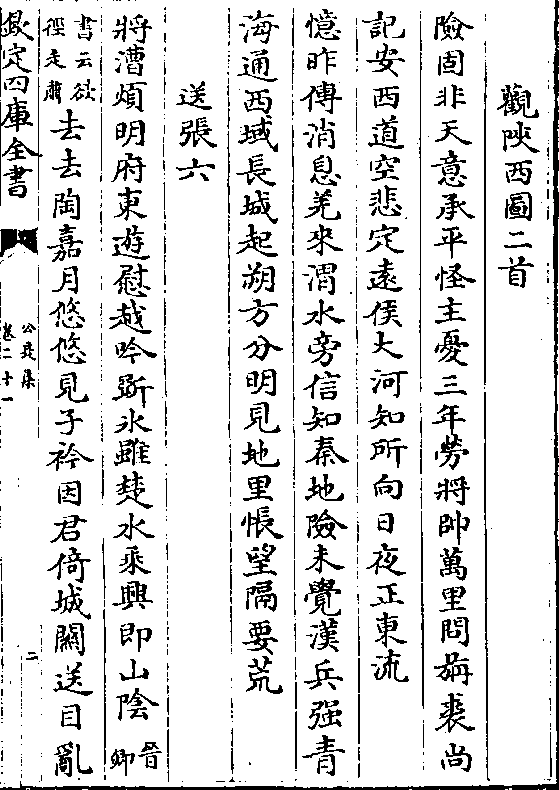 觀陜西圖二首
險固非天意承平怪主憂三年勞將帥萬里問旃裘尚
記安西道空悲定遠侯大河知所向日夜正東流
憶昨傳消息羌來渭水旁信知秦地險未覺漢兵强青
海通西域長城起朔方分明見地里悵望隔要荒
送張六
將漕煩明府東遊慰越吟斵氷雖楚水乘興即山陰晉卿
書云欲徑走肅去去陶嘉月悠悠見子衿因君倚城闕送目亂
欽定四庫全書
公是集
卷二十一
二